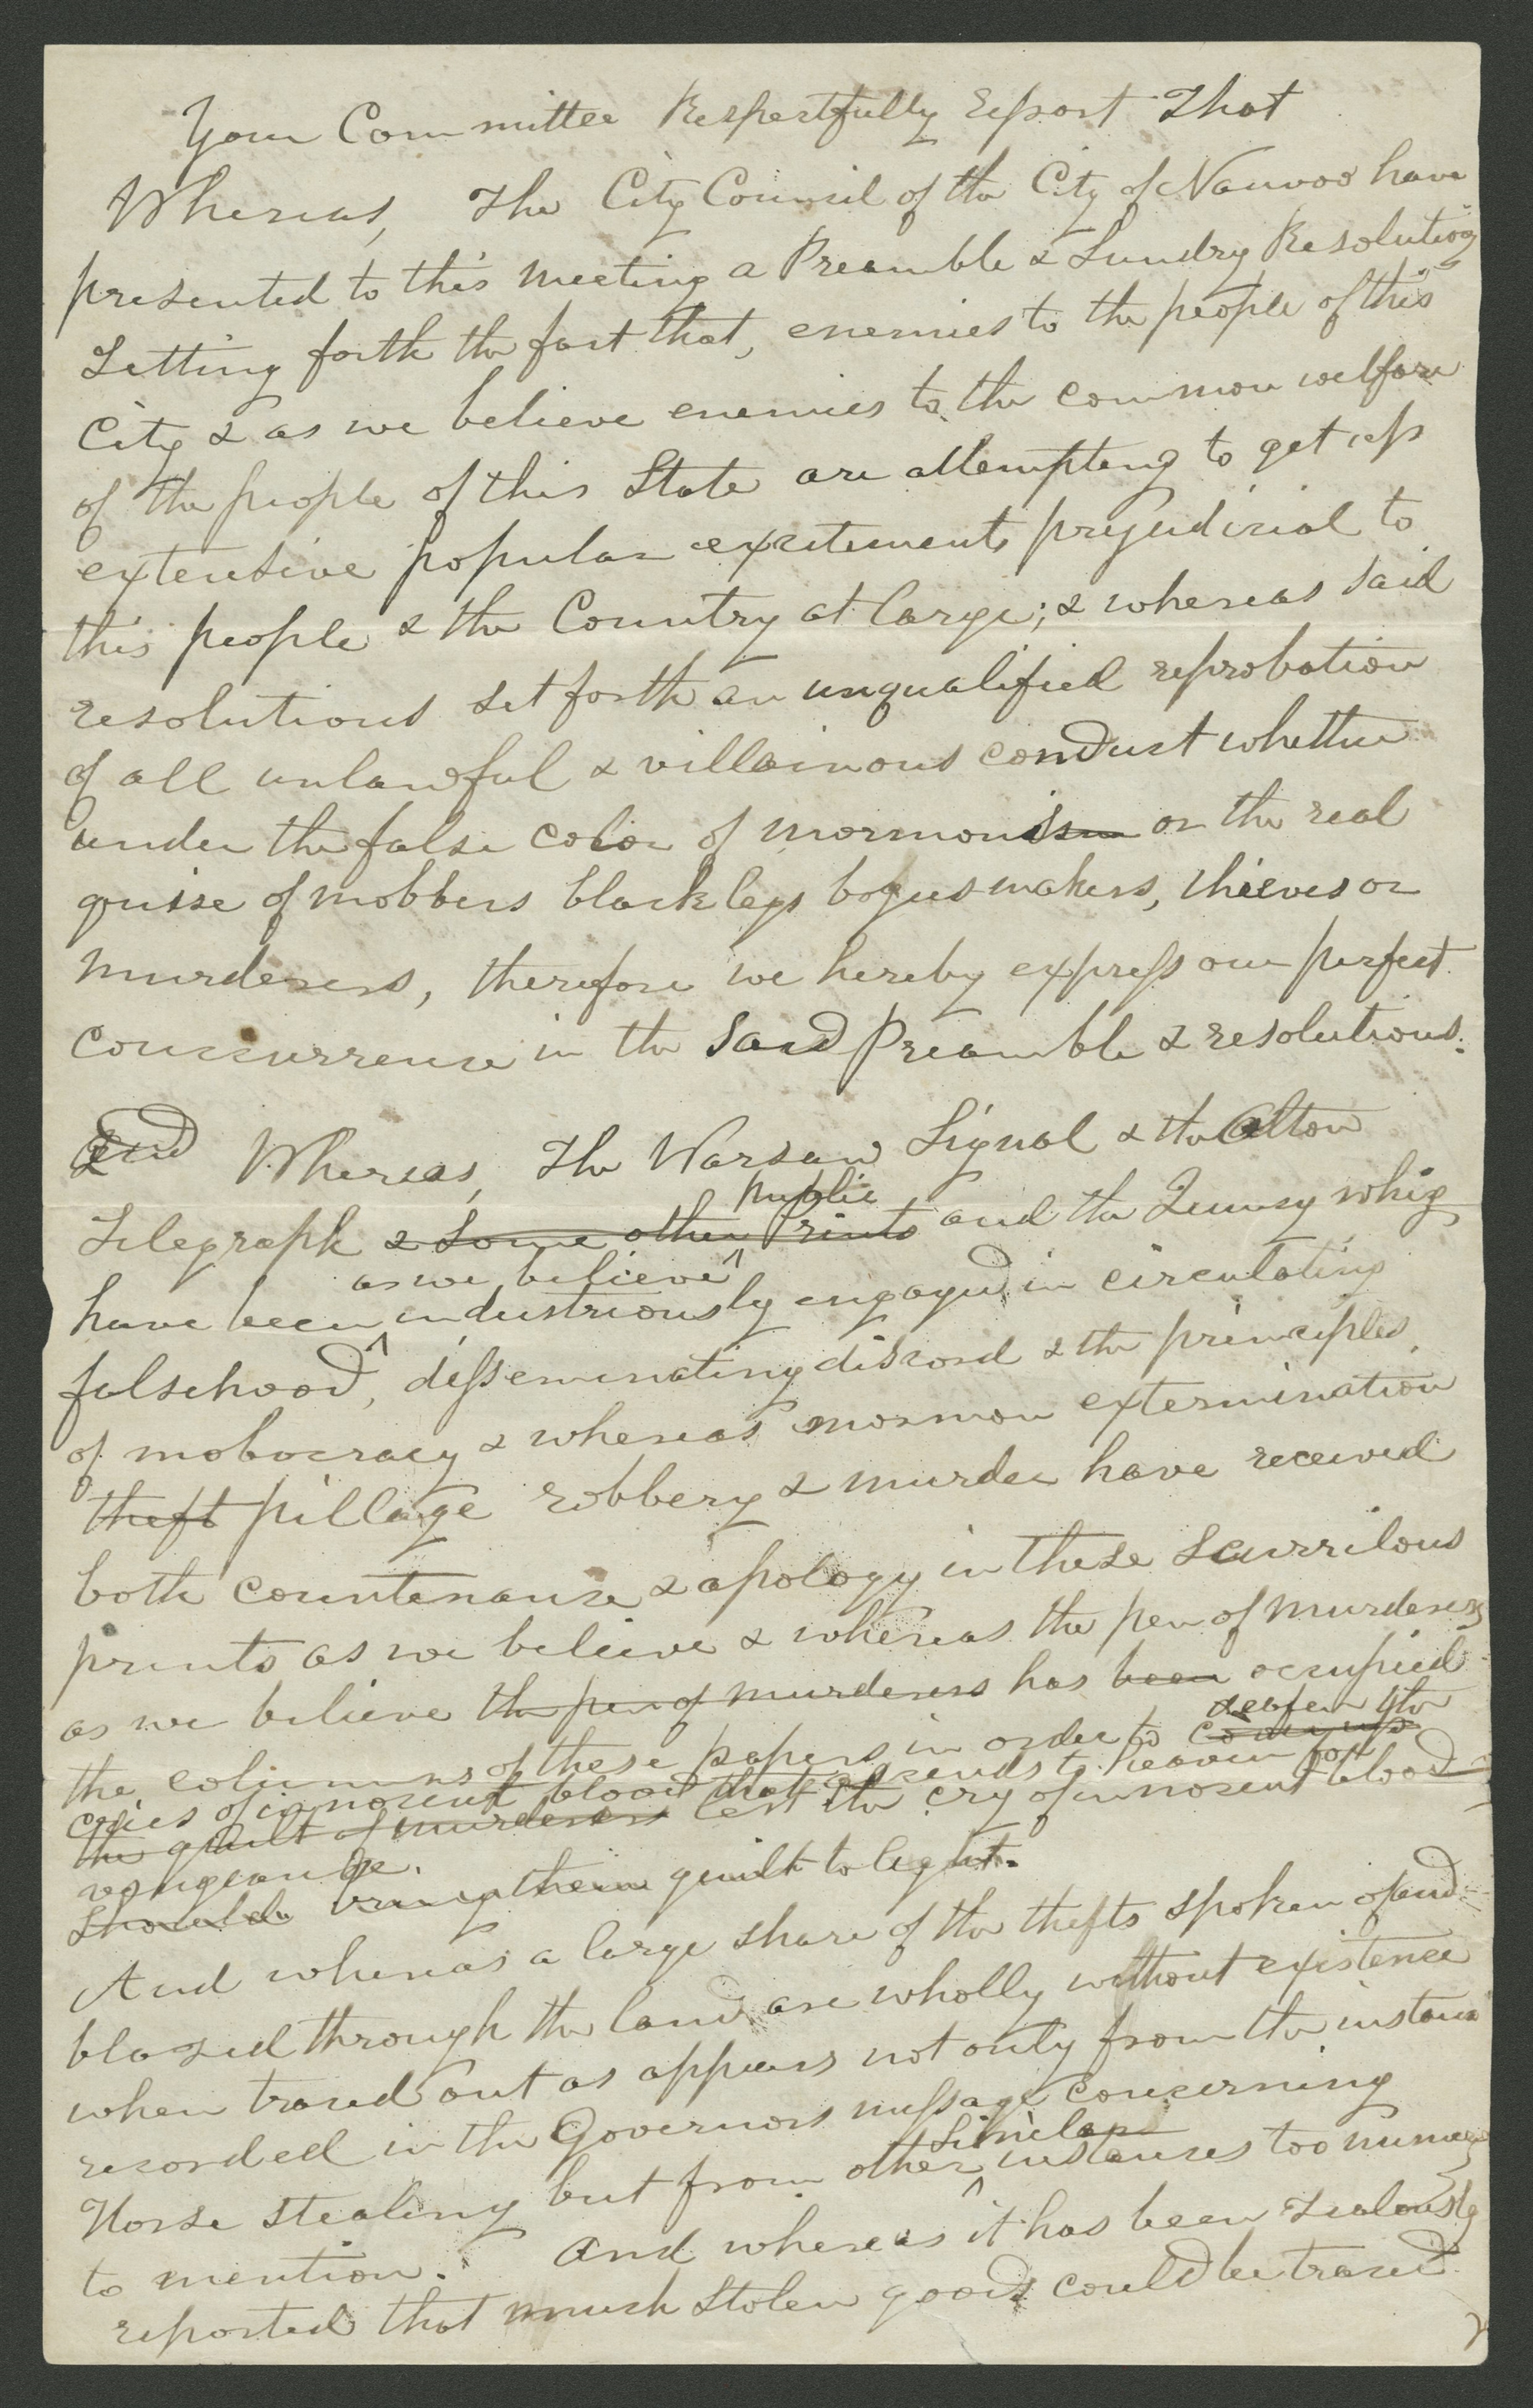 Your Committee Respectfully Report That
Whereas, The City Council of the City of Nauvoo have
presented to this meeting a Preamble & Sundry Resolutions
Setting forth the fact that, enemies to the people of this
City & as we believe enemies to the common welfare
of the people of this State are attempting to get up
extensive popular excitements prejudicial to
this people & the Country at large; & whereas said
resolutions set forth an unqualified reprobation
of all unlawful & villainous conduct whether
under the false color of mormonism or the real
guise of mobbers blacklegs bogusmakers, thieves or
murderers, therefore we hereby express our perfect
concurrence in the said Preamble & resolutions.
And Whereas, The Warsaw Signal & the Alton
public
Telegraph & some other Prints and the Quincy whig
as we believe
have been industriously engaged in circulating
falsehood, disseminating discord & the principles
of mobocracy & whereas mormon extermination
theft pillage robbery & murder have received
both countenance & apology in these Scurrilous
prints as we believe & whereas the pen of murderers
as we believe the pen of murderers has been occupied
deafen the
the columns of these papers in order to cover up
cries of innocent blood that ascends to heaven for
the guilt of murderers lest the cry of innocent blood
vengeance.
should bring their guilt to light.
And whereas a large share of the thefts spoken of and
blazed through the land are wholly without existence
when traced out as appears not only from the instance
recorded in the Governors message concerning
Similar
Horse stealing but from other instances too numerous
to mention. And whereas it has been zealously
reported that much stolen goods could be traced